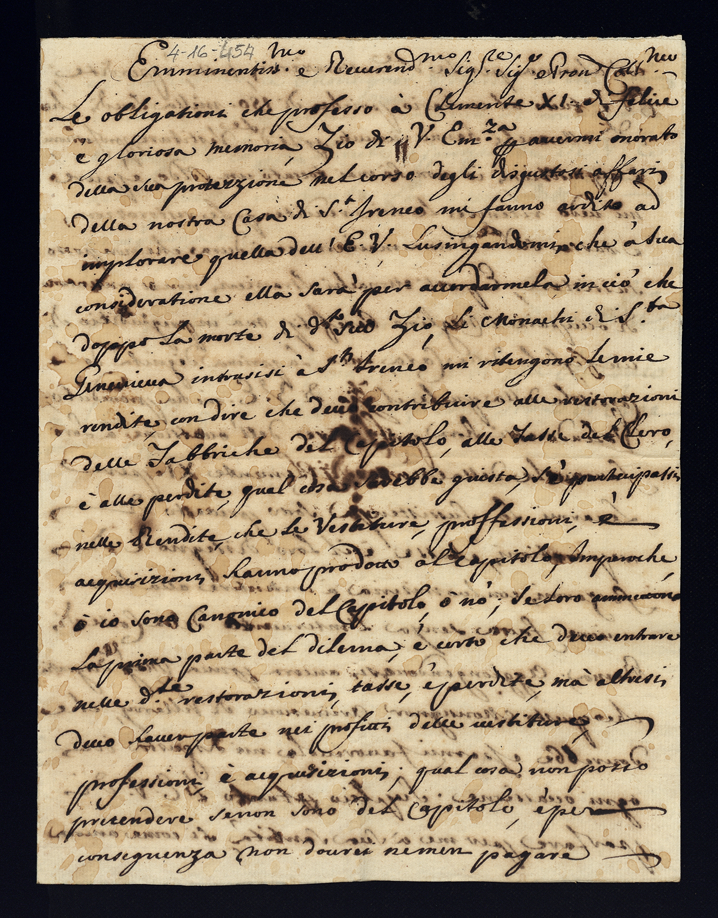 4-16-454
Emminentiss.mo e Reverend.mo Sig.re Sig.re e Pron Coll.mo
Le obligationi che professo à Clemente XI di felice
e gloriosa memoria, Zio di V. Em.za per avermi onorato
della sua protezzione nel corso degli disgustosi affari
della nostra Casa di S.t Ireneo mi fanno ardito ad
implorare quella dell' E. V. Lusingandomi, che à sua
consideratione ella sarà per accordarmela in ciò che
doppo La morte di d.to suo Zio, Le Monachi di S.ta
Genevieva intrusisi à S.t Ireneo mi ritengono le mie
rendite, con dire che devo contribuire alle restorazioni
delle Fabbriche del Capitolo, alle Tasse del Clero,
è alle perdite, qual cosa sarebbe giusta, s'è participassi
nelle Rendite, che Le Vestiture, proffessioni, è
acquisizioni hanno prodotto al Capitolo, Imperoche,
ò io sono Canonico del Capitolo, ò nò, se loro ammettono
La prima parte del dilema, è certo che devo entrare
nelle d.te restorazioni, tasse, è perdite, mà altresi
devo haver parte nei profitti delle vestiture,
professioni, è acquisizioni, qual cosa non posso
pretendere se non sono del Capitolo, è per
consequenza non dovrei nemen pagare